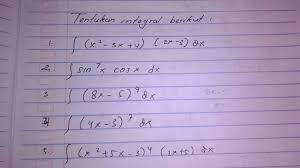 Tentukan integral berikut :
1. ∫ (x² - 3x + 4) (2x - 3) dx
2. ∫ sin⁷ x cos x dx
3. ∫ (8x - 5)⁹ dx
4. ∫ (4x - 3)⁷ dx
5. ∫ (x² + 5x - 3)⁴ (2x + 5) dx